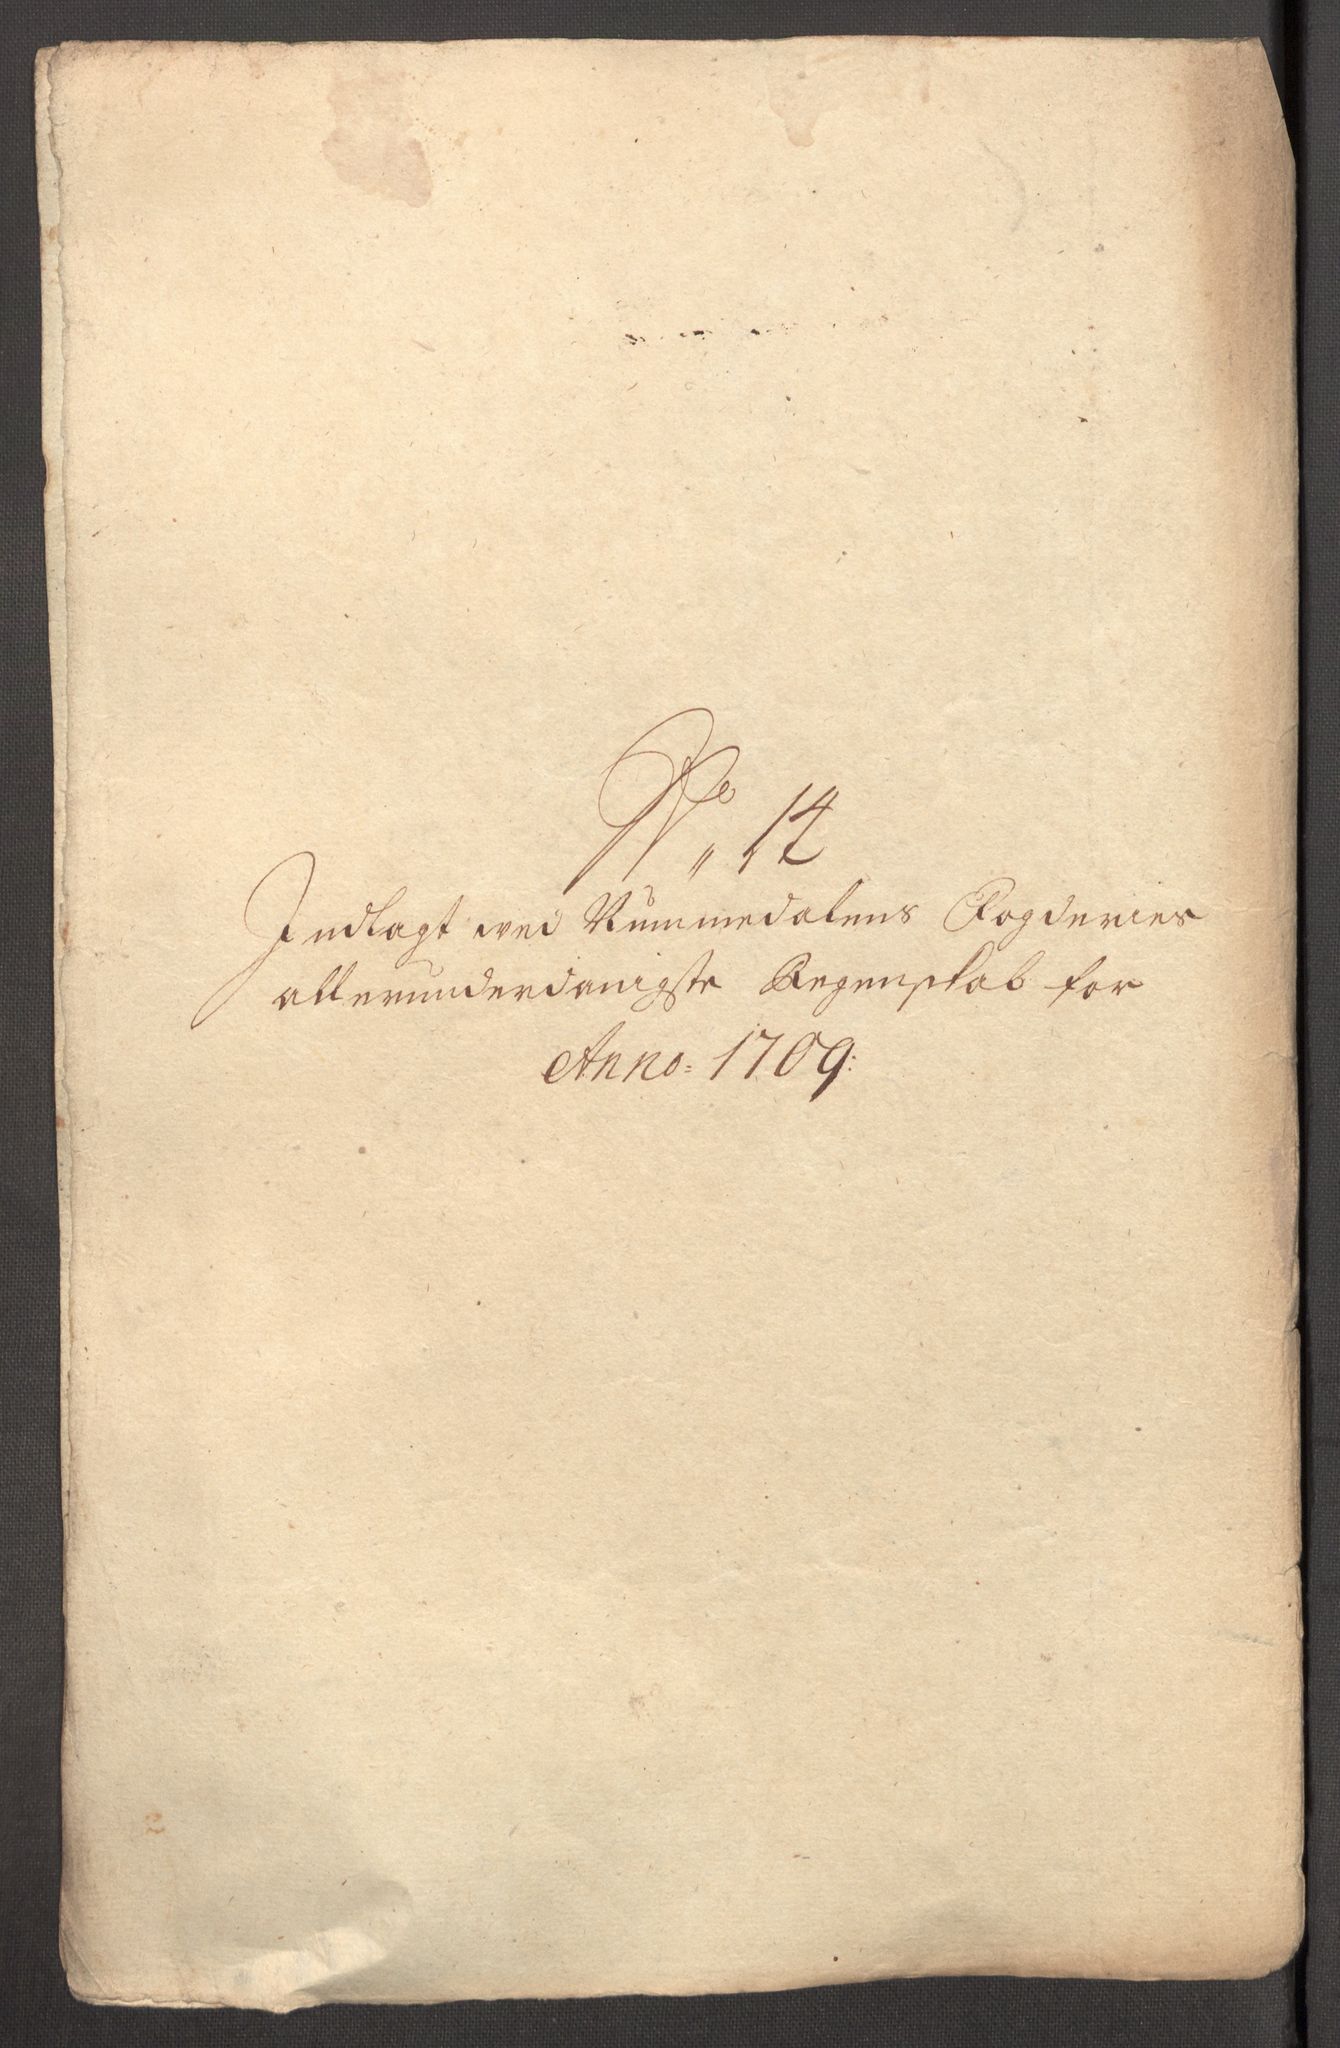 No. 14
Indlagt wed Nummedalens Fogderies
allerunderdanigste Regenskab for
Anno 1709: